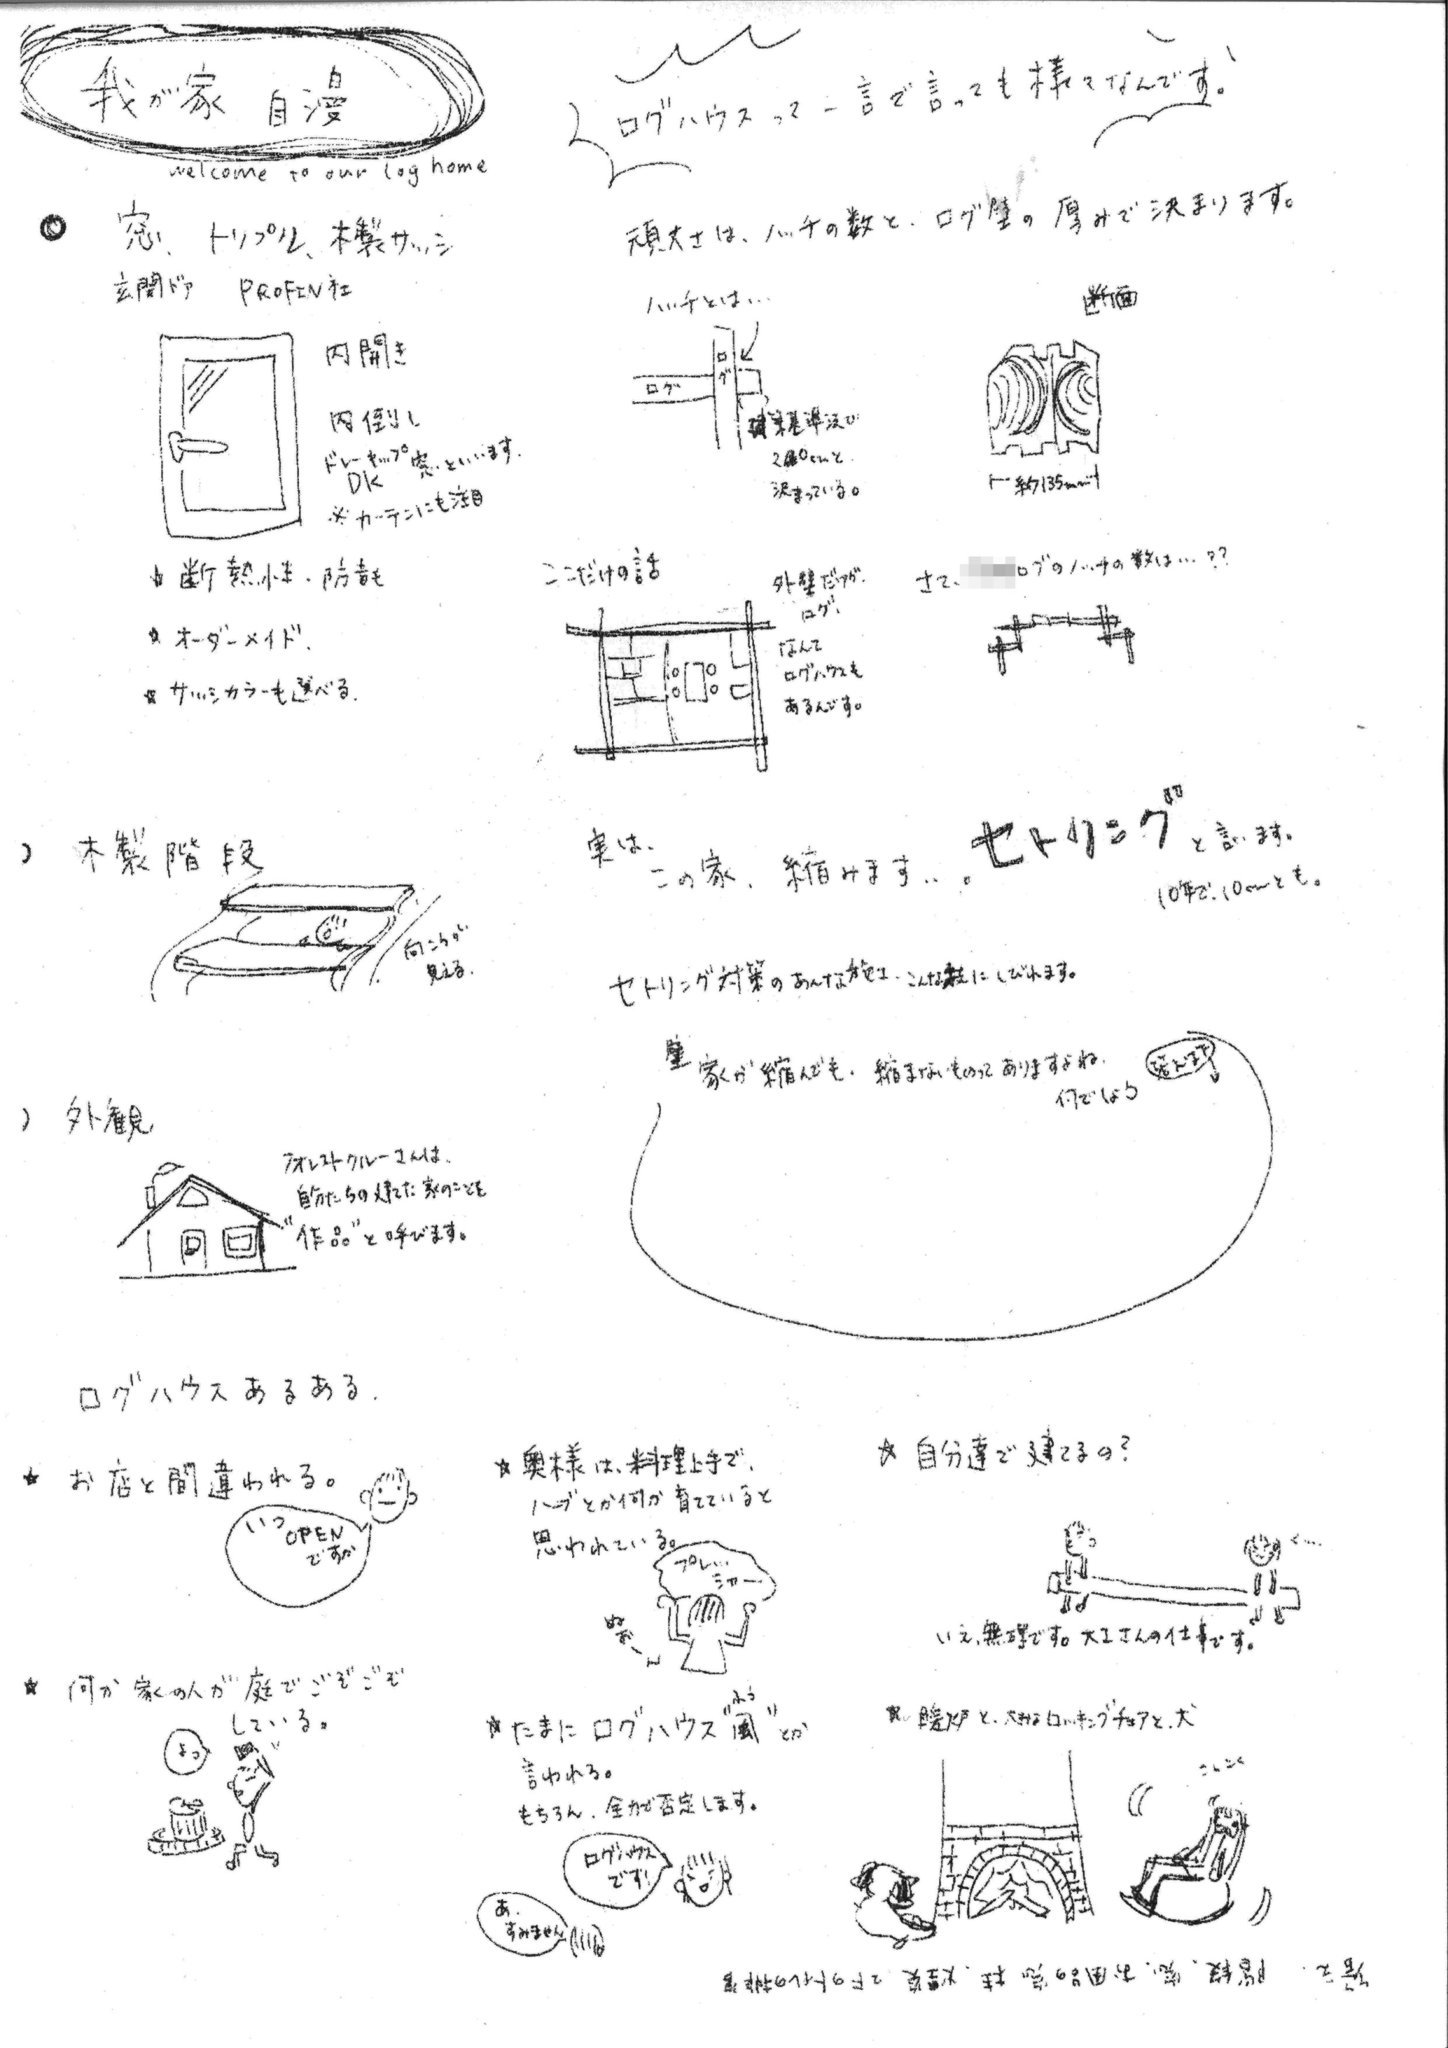 我が家 自慢
welcome to our log home
ログハウスって一言で言っても様々なんです。
窓、トリプル、木製サッシ
玄関ドア PROFIN社
内開き
内倒し
ドレーキップ窓といいます。
DK
※カーテンにも注目
★ 断熱性・防音も
★ オーダーメイド.
★ サッシカラーも選べる.
頑丈さは、ノッチの数と、ログ壁の厚みで決まります。
ノッチとは…
ログ
ログ
建築基準法で
決まっている。
断面
約135mm
ここだけの話
外壁だけが、
ログ、
なんて
ログハウスも
あるんです。
さて、
ログのノッチの数は…??
木製階段
向こうが
見える.
実は、
この家、縮みます…。セトリングと言います。
10年で、10cmとも。
セトリング対策のあんな施工、こんな技にしびれます。
家が縮んでも、縮まないものってありますよね.
何でしょう
外観
フォレストクルーさんは、
自分たちの建てた家のことを
"作品"と呼びます。
ログハウスあるある.
★ お店と間違われる。
いつ
OPEN
ですか
★ 奥様は、料理上手で、
ハーブとか何か育てていると
思われている。
プレッ
シャー
★ 自分達で建てるの?
く…
いえ、無理です。大工さんの仕事です。
★ 何か家の人が庭でごそごそ
している。
よっ
★ たまにログハウス"風"とか
ふう
言われる。
もちろん、全力で否定します。
ログハウス
です!
あ、
すみません
★ 暖炉と、大きなロッキングチェアと、犬
答え. 階段、窓、お風呂の窓、柱、煙突、2Fのトイレの排管